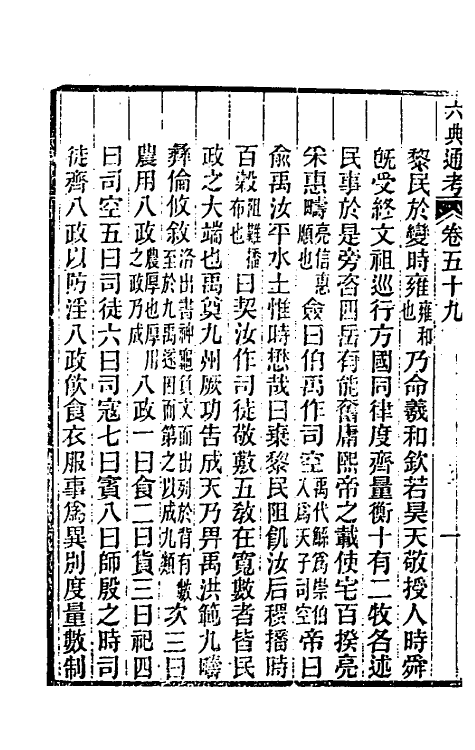 六典通考 卷五十九 一
黎民於變時雍雍和也乃命羲和欽若昊天敬授人時舜
旣受終文祖巡行方國同律度齊量衡十有二牧各述
民事於是旁咨四岳有能奮庸熙帝之載使宅百揆亮
采惠疇亮信惠順也僉曰伯禹作司空禹代鯀爲崇伯入爲天子司空帝曰
俞禹汝平水土惟時懋哉曰棄黎民阻飢汝后稷播時
百穀阻難播布也曰契汝作司徒敬敷五敎在寬數者皆民
政之大端也禹奠九州厥功告成天乃畀禹洪範九疇
彝倫攸敘洛出書神龜負文而出列於背有數至於九禹遂因而第之以成九類次三曰
農用八政農厚也厚用之政乃成八政一曰食二曰貨三曰祀四
曰司空五曰司徒六曰司寇七曰賓八曰師殷之時司
徒齊八政以防淫八政飲食衣服事爲異別度量數制